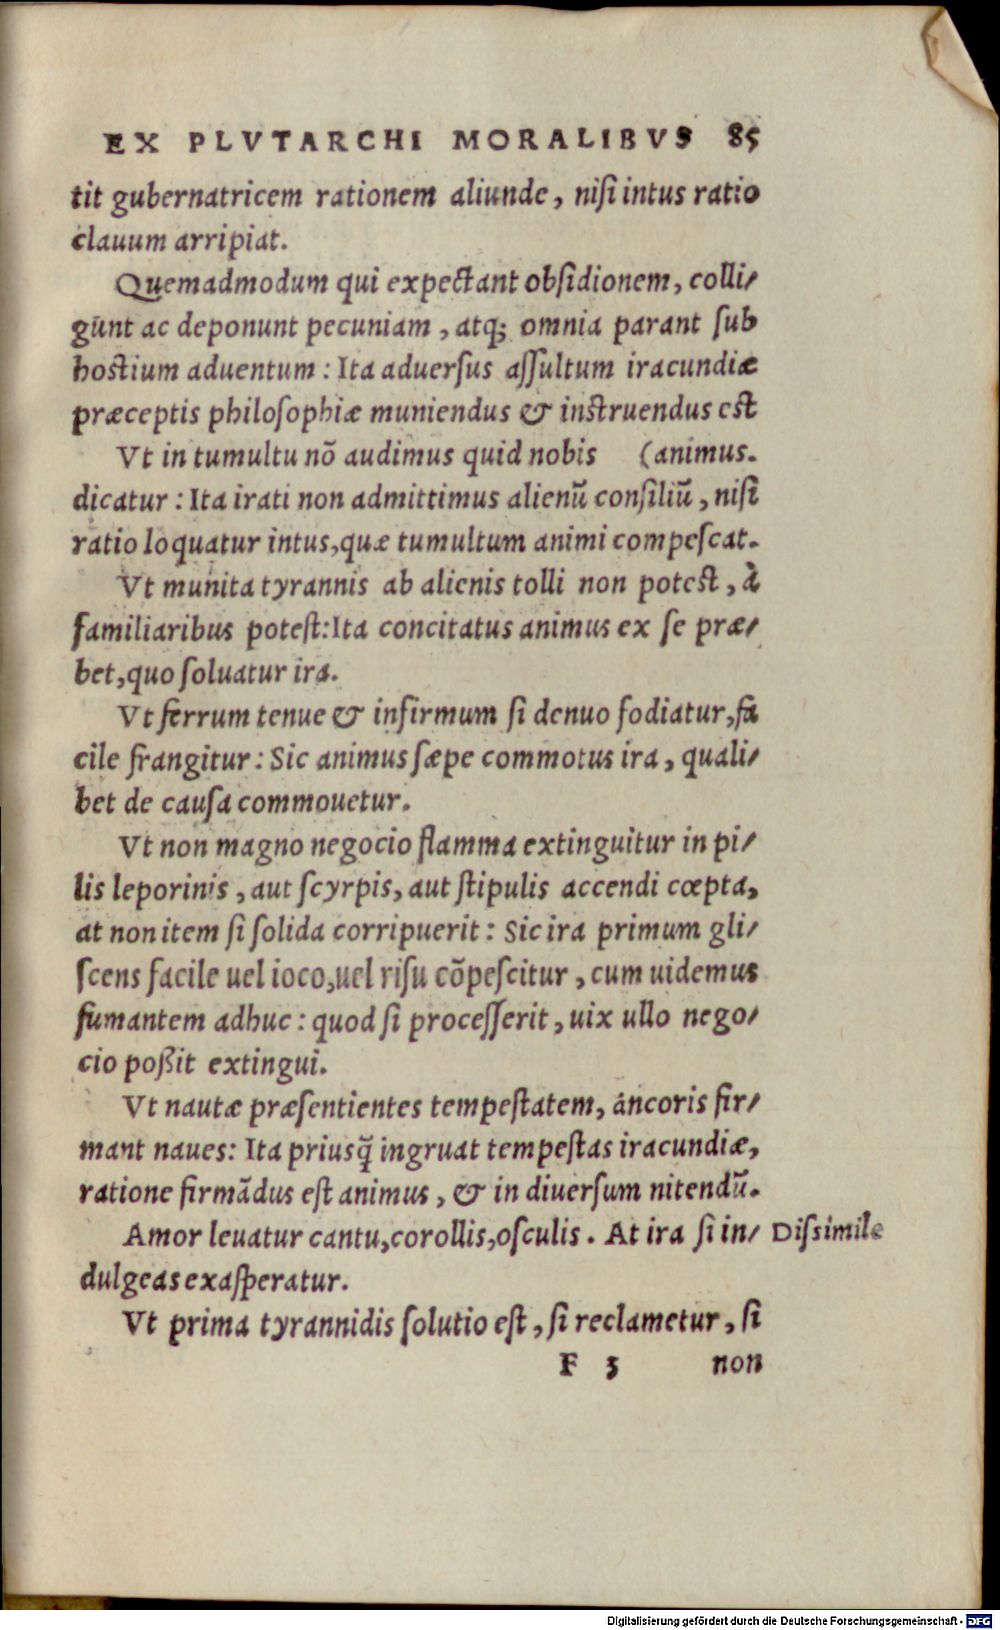 EX PLVTARCHI MORALIBVS 85
tit gubernatricem rationem aliunde, niſi intus ratio
clauum arripiat.
Quemadmodum qui expectant obſidionem, colli-
gūnt ac deponunt pecuniam, atq; omnia parant ſub
hostium aduentum: Ita aduerſus aſſultum iracundiæ
præceptis philoſophiæ muniendus & instruendus est
Vt in tumultu nō audimus quid nobis (animus.
dicatur: Ita irati non admittimus alienū conſiliū, niſi
ratio loquatur intus, quæ tumultum animi compeſcat.
Vt munita tyrannis ab alienis tolli non potest, à
familiaribus poteſt: Ita concitatus animus ex ſe præ-
bet, quo ſoluatur ira.
Vt ferrum tenue & infirmum ſi denuo fodiatur, fa
cile frangitur: Sic animus ſæpe commotus ira, quali-
bet de cauſa commouetur.
Vt non magno negocio flamma extinguitur in pi-
lis leporinis, aut ſcyrpis, aut ſtipulis accendi cœpta,
at non item ſi ſolida corripuerit: Sic ira primum gli-
ſcens facile uel ioco, uel riſu cōpeſcitur, cum uidemus
fumantem adhuc: quod ſi proceſſerit, uix ullo nego-
cio poßit extingui.
Vt nautæ præſentientes tempeſtatem, ancoris fir-
mant naues: Ita priusq̃ ingruat tempeſtas iracundiæ,
ratione firmādus eſt animus, & in diuerſum nitendū.
Amor leuatur cantu, corollis, oſculis. At ira ſi in- Diſsimile
dulgeas exaſperatur.
Vt prima tyrannidis ſolutio eſt, ſi reclametur, ſi
F 3 non
Digitalisierung gefördert durch die Deutsche Forschungsgemeinschaft - DFG